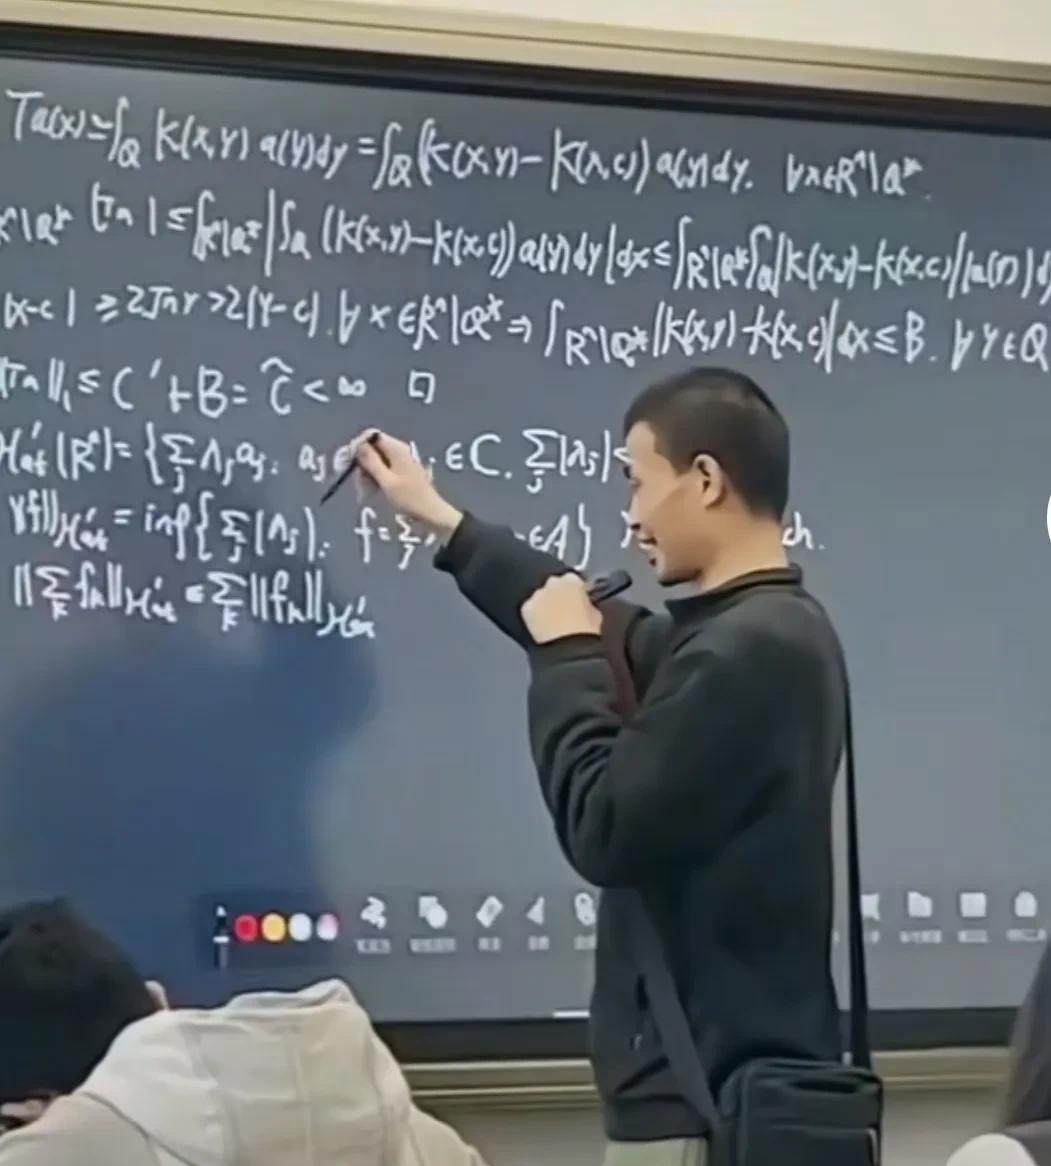 Ta(x)=∫_Q K(x,y) a(y)dy = ∫_Q (K(x,y)− K(x,c)) a(y)dy. ∀x∈Rⁿ\Q*.
Rⁿ\Q* |Ta| ≤ ∫_{Rⁿ\Q*} |∫_Q (K(x,y)−K(x,c)) a(y)dy| dx ≤ ∫_{Rⁿ\Q*} ∫_Q |K(x,y)−K(x,c)| |a(y)| d
|x−c| ≥ 2√n r > 2|y−c|. ∀x∈Rⁿ\Q* ⇒ ∫_{Rⁿ\Q*} |K(x,y)−K(x,c)| dx ≤ B. ∀y∈Q
‖Ta‖₁ ≤ C′+B = C̃ < ∞ □
H¹_at(Rⁿ) = {∑_j λ_j a_j: a_j ∈ C. ∑_j |λ_j| <
‖f‖_{H¹_at} = inf{∑_j |λ_j|: f=∑_j ∈A} ch.
‖∑_k f_k‖_{H¹_at} ≤ ∑_k ‖f_k‖_{H¹_at}